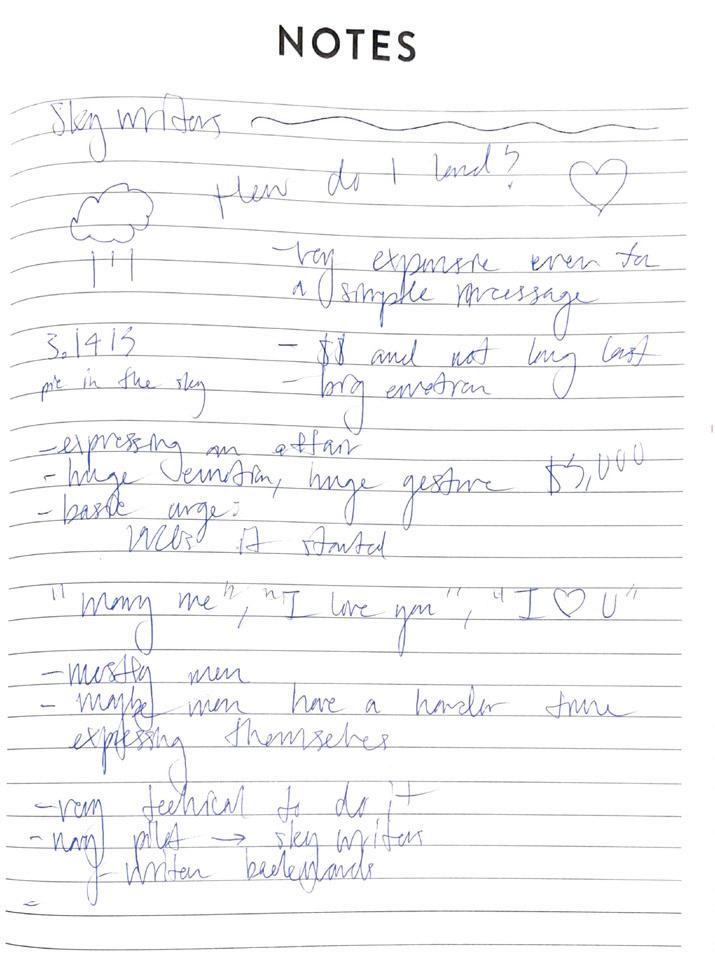 NOTES
Sky writers
How do I land?
-very expensive even for
a simple message
3.1415
pie in the sky
- $$ and not long last
- big emotion
-expressing an affair
- huge emotion, huge gesture $5,000
- basic urge:
it started
"Marry me", "I love you", "I ♡ U"
-mostly men
- maybe men have a harder time
expressing themselves
-very techical to do it
-navy pilot → sky writers
- written backwards
-